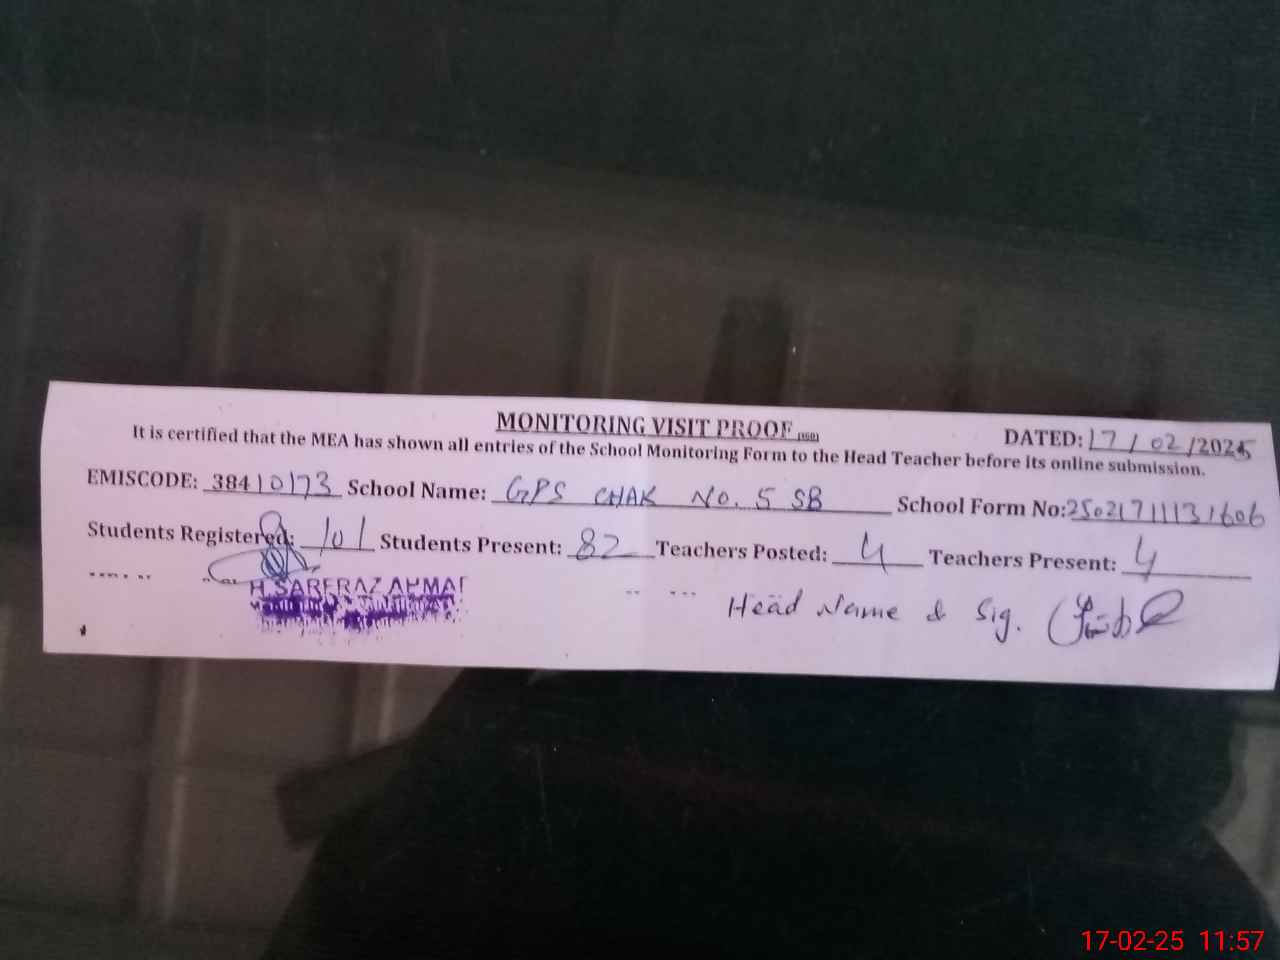 MONITORING VISIT PROOF
DATED: 17/02/2025
It is certified that the MEA has shown all entries of the School Monitoring Form to the Head Teacher before its online submission.
EMISCODE: 38410173 School Name: GPS CHAK No. 5 SB School Form No: 250217111131606
Students Registered: 101 Students Present: 82 Teachers Posted: 4 Teachers Present: 4
SARFRAZ AHMAD
Head Name & Sig.
17-02-25 11:57